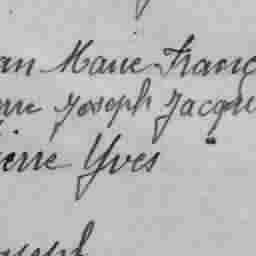 an Marie Franç
rre Joseph Jacque
ierre Yves "
oseph